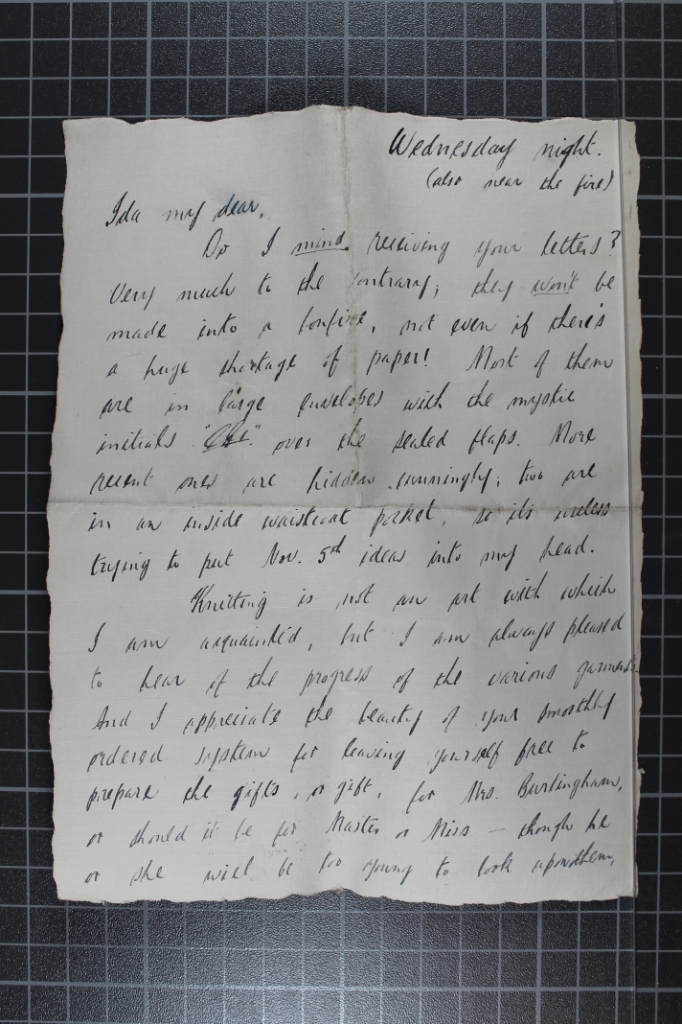 Wednesday night.
(also near the fire)
Ida my dear,
Do I mind receiving your letters?
Very much to the contrary; they won't be
made into a bonfire, not even if there's
a huge shortage of paper! Most of them
are in large envelopes with the mystic
initials over the sealed flaps. More
recent ones are hidden cunningly; two are
in an inside waistcoat pocket, so its useless
trying to put Nov. 5th ideas into my head.
Knitting is not an art with which
I am acquainted, but I am always pleased
to hear of the progress of the various garments.
And I appreciate the beauty of your smoothly
ordered system for leaving yourself free to
prepare the gifts, or gift, for Mrs. Burlingham,
or should it be for Master or Miss — though he
or she will be too young to look upon them,